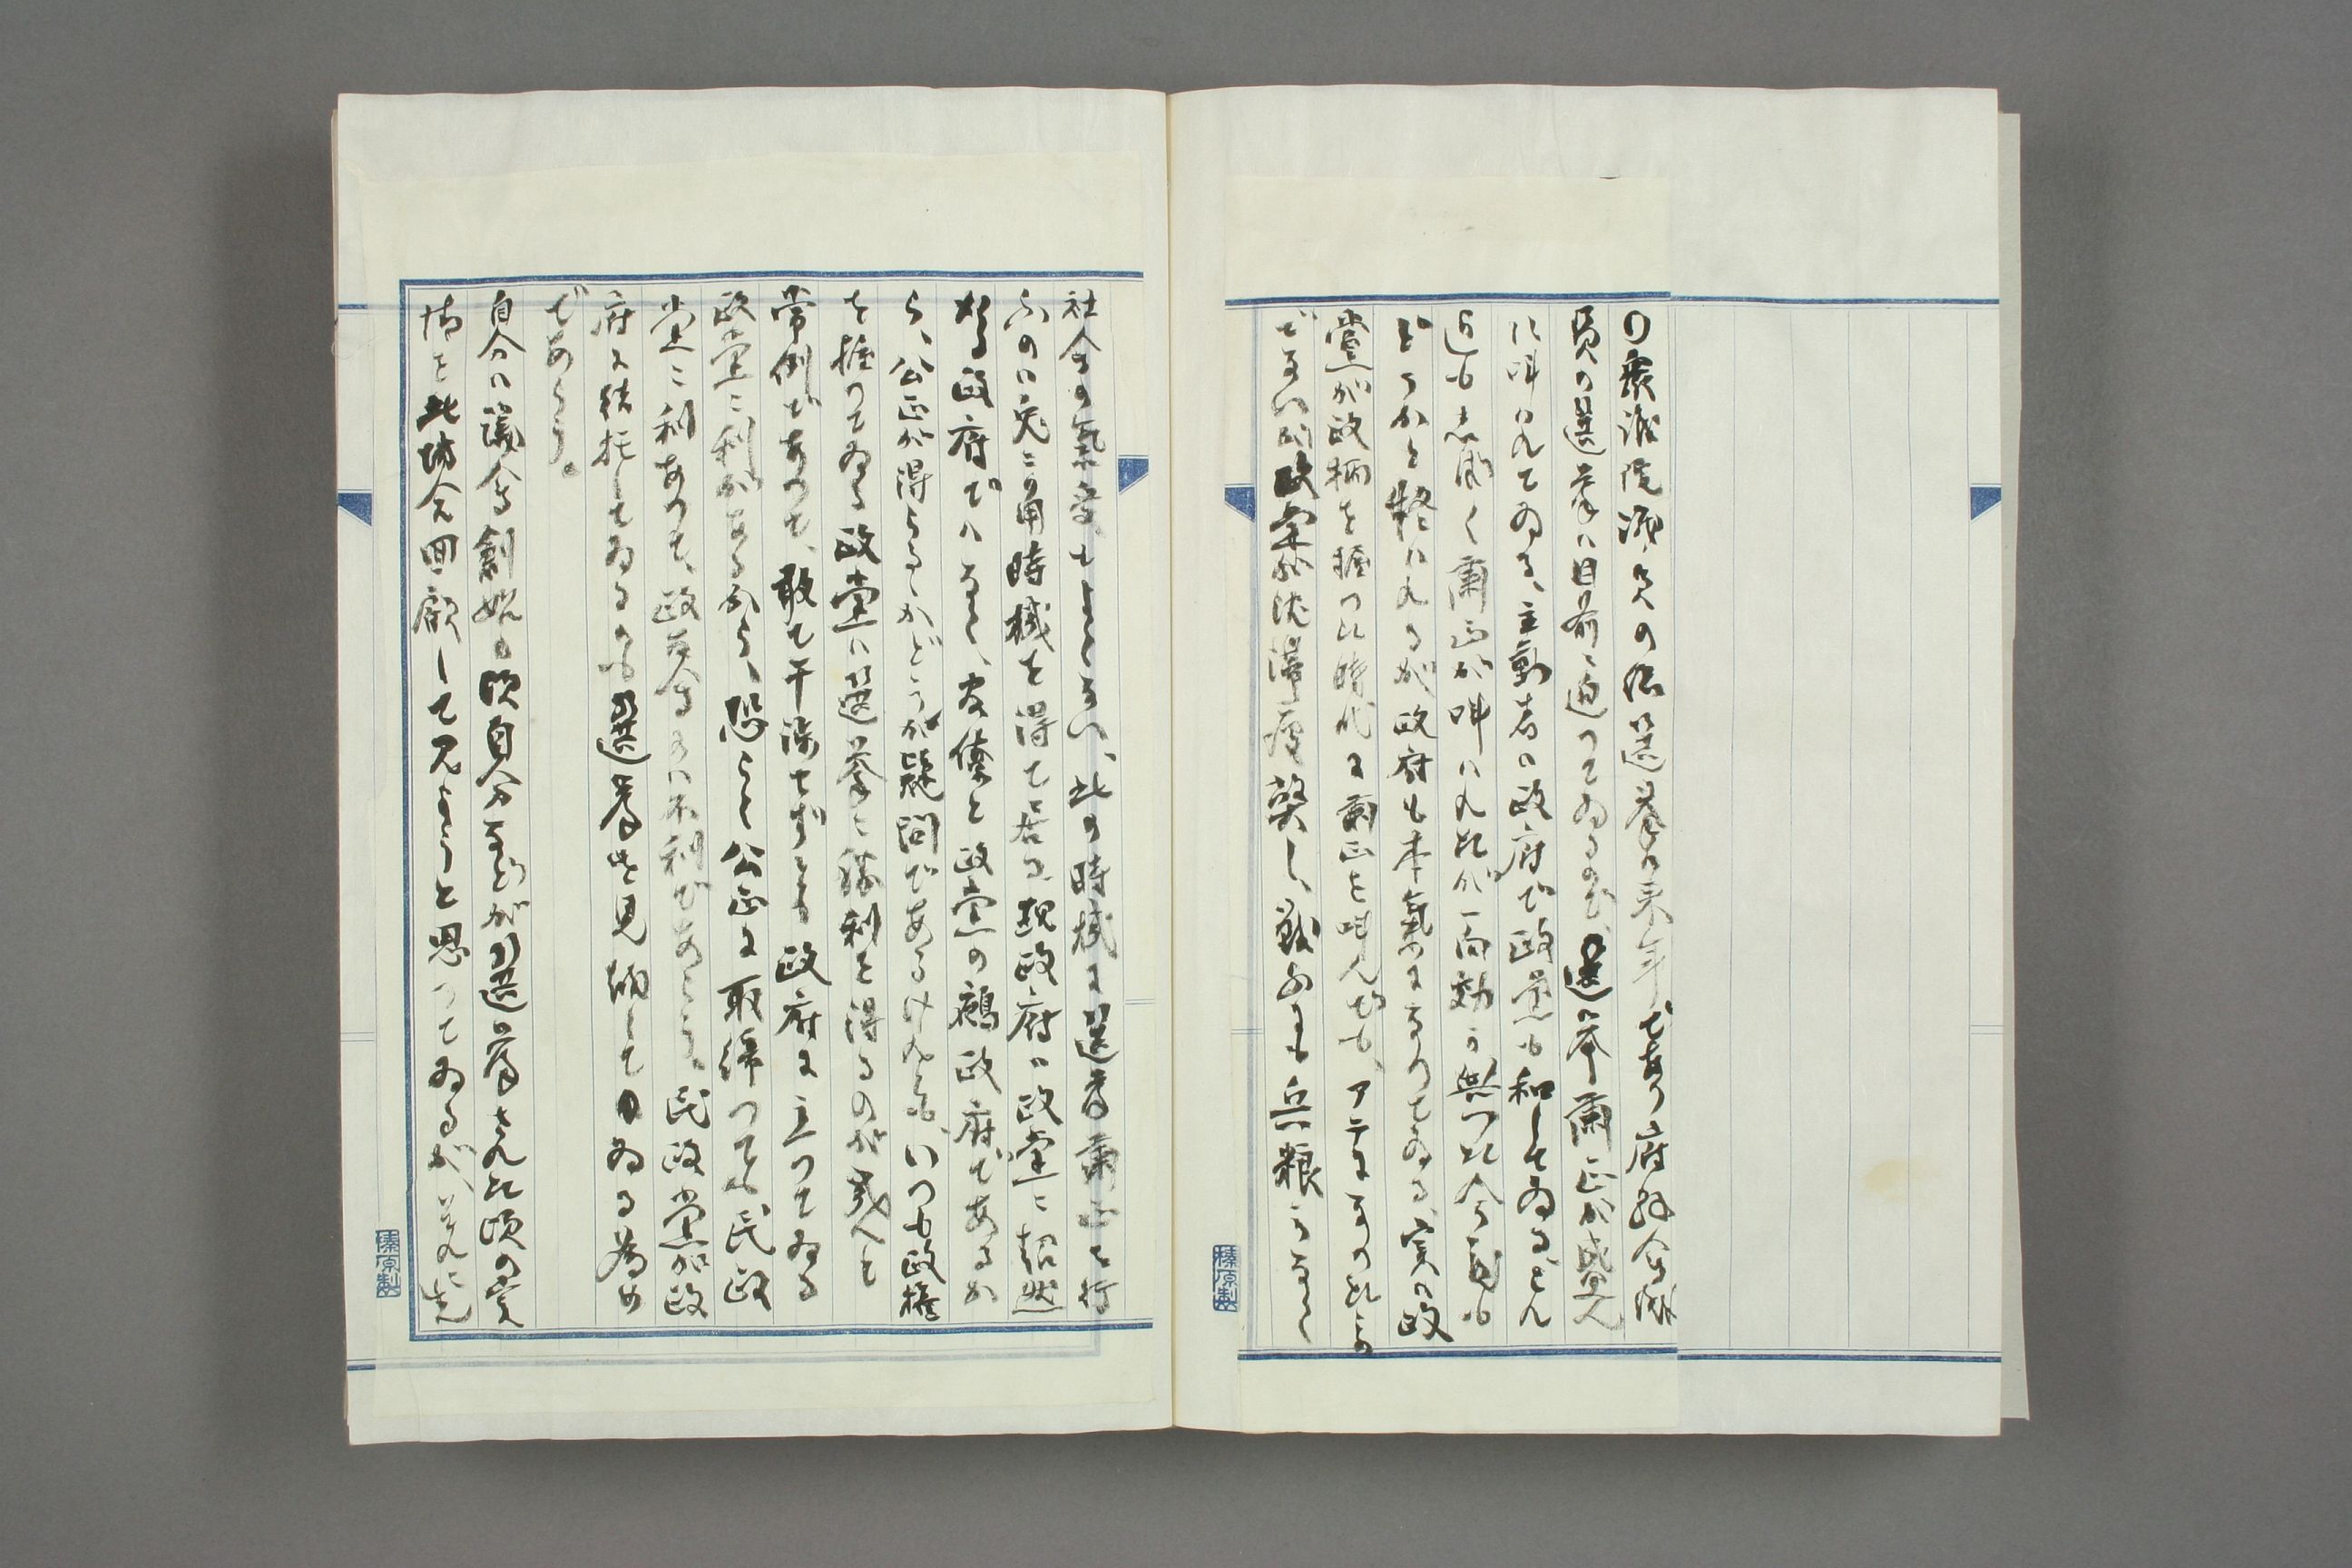 〇衆議院議員の總選挙は来年であり府縣会議
員の選挙は目前に迫つてゐるので、選挙粛正が盛ん
に叫ばれてゐる、主動者は政府で政黨も和してゐる、どん
迄も悪風く粛正が叫ばれたが一向効力無つた今度も
どうかと疑はれるが政府も本気になつてゐる、実は政
黨が政柄を握つた時代に粛正を叫んでも、アテになつたもの
でないが政黨が沈滞疲弊し、戦ふにも兵粮もなく
社会の気受もよくない、此の時機に選挙粛正を行
ふのは兎に角時機を得て居る、現政府は政黨に超然
たる政府ではなく、官僚と政黨の鵺政府であるか
ら、公正が得らるゝかどうか疑問であるけれども、いつも政権
を握つてゐる政黨は選挙に勝利を得るのが殆んど
常例であつて、敢て干渉せずとも政府に立つてゐる
政黨に利があるから、恐らく公正に取締つても民政
党に利あつて、政友会には不利であらう。民政党が政
府に結托してゐるのも選挙を見越してのゐる為め
であらう。
自分は議会創始の頃自分などが選挙された頃の実
情を此場合回顧して見ようと思つてゐるが、それに先
榛原製
榛原製